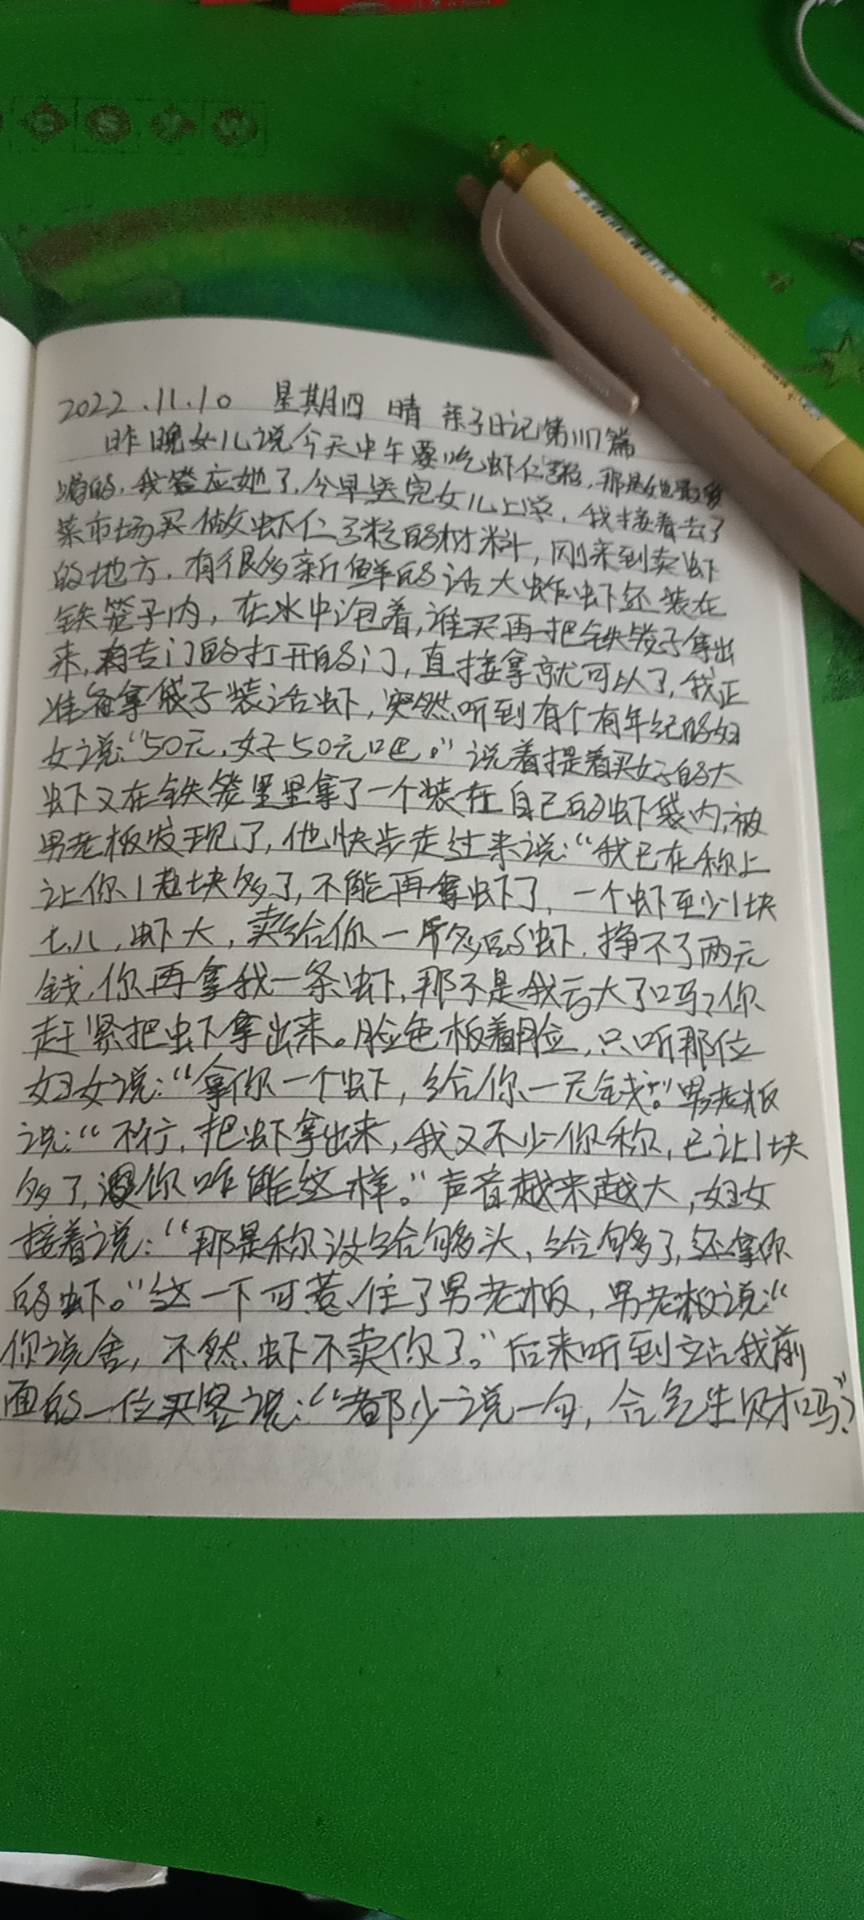 2022.11.10 星期四 晴 亲子日记第1117篇
昨晚女儿说今天中午要吃虾仁粥,那是她最
的,我答应她了,今早送完女儿上学,我接着去了
菜市场买做虾仁粥的材料,刚来到卖虾
的地方,有很多新鲜的活大虾,虾还装在
铁笼子内,在水中泡着,谁买再把铁笼子拿出
来,有专门的打开的门,直接拿就可以了,我正
准备拿袋子装活虾,突然听到有个有年纪的妇
女说:“50元,好50元吧。”说着提着买好的大
虾又在铁笼里拿了一个装在自己的虾袋内,被
男老板发现了,他快步走过来说:“我已在称上
让你1块多了,不能再拿虾了,一个虾至少1块
七八,虾大,卖给你一斤多的虾,挣不了两元
钱,你再拿我一条虾,那不是我亏大了吗?你
赶紧把虾拿出来。脸色板着脸,只听那位
妇女说:“拿你一个虾,给你一元钱。”男老板
说:“不行,把虾拿出来,我又不少你称,已让1块
多了,你咋能这样。”声音越来越大,妇女
接着说:“那是称没给够头,给够了,还拿你
的虾。”这一下可惹住了男老板,男老板说:“
你说舍,不然虾不卖你了。”后来听到立占我前
面的一位买客说:“都少说一句,合气生财吗?”